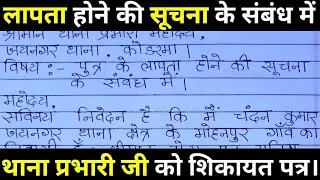 लापता होने की सूचना के संबंध में
श्रीमान थाना प्रभारी महोदय,
जयनगर थाना, कोडरमा।
विषय:- पुत्र के लापता होने की सूचना
के संबंध में।
महोदय,
सविनय निवेदन है कि मैं चंदन कुमार
जयनगर थाना क्षेत्र के मोहनपुर गाँव का
थाना प्रभारी जी को शिकायत पत्र।